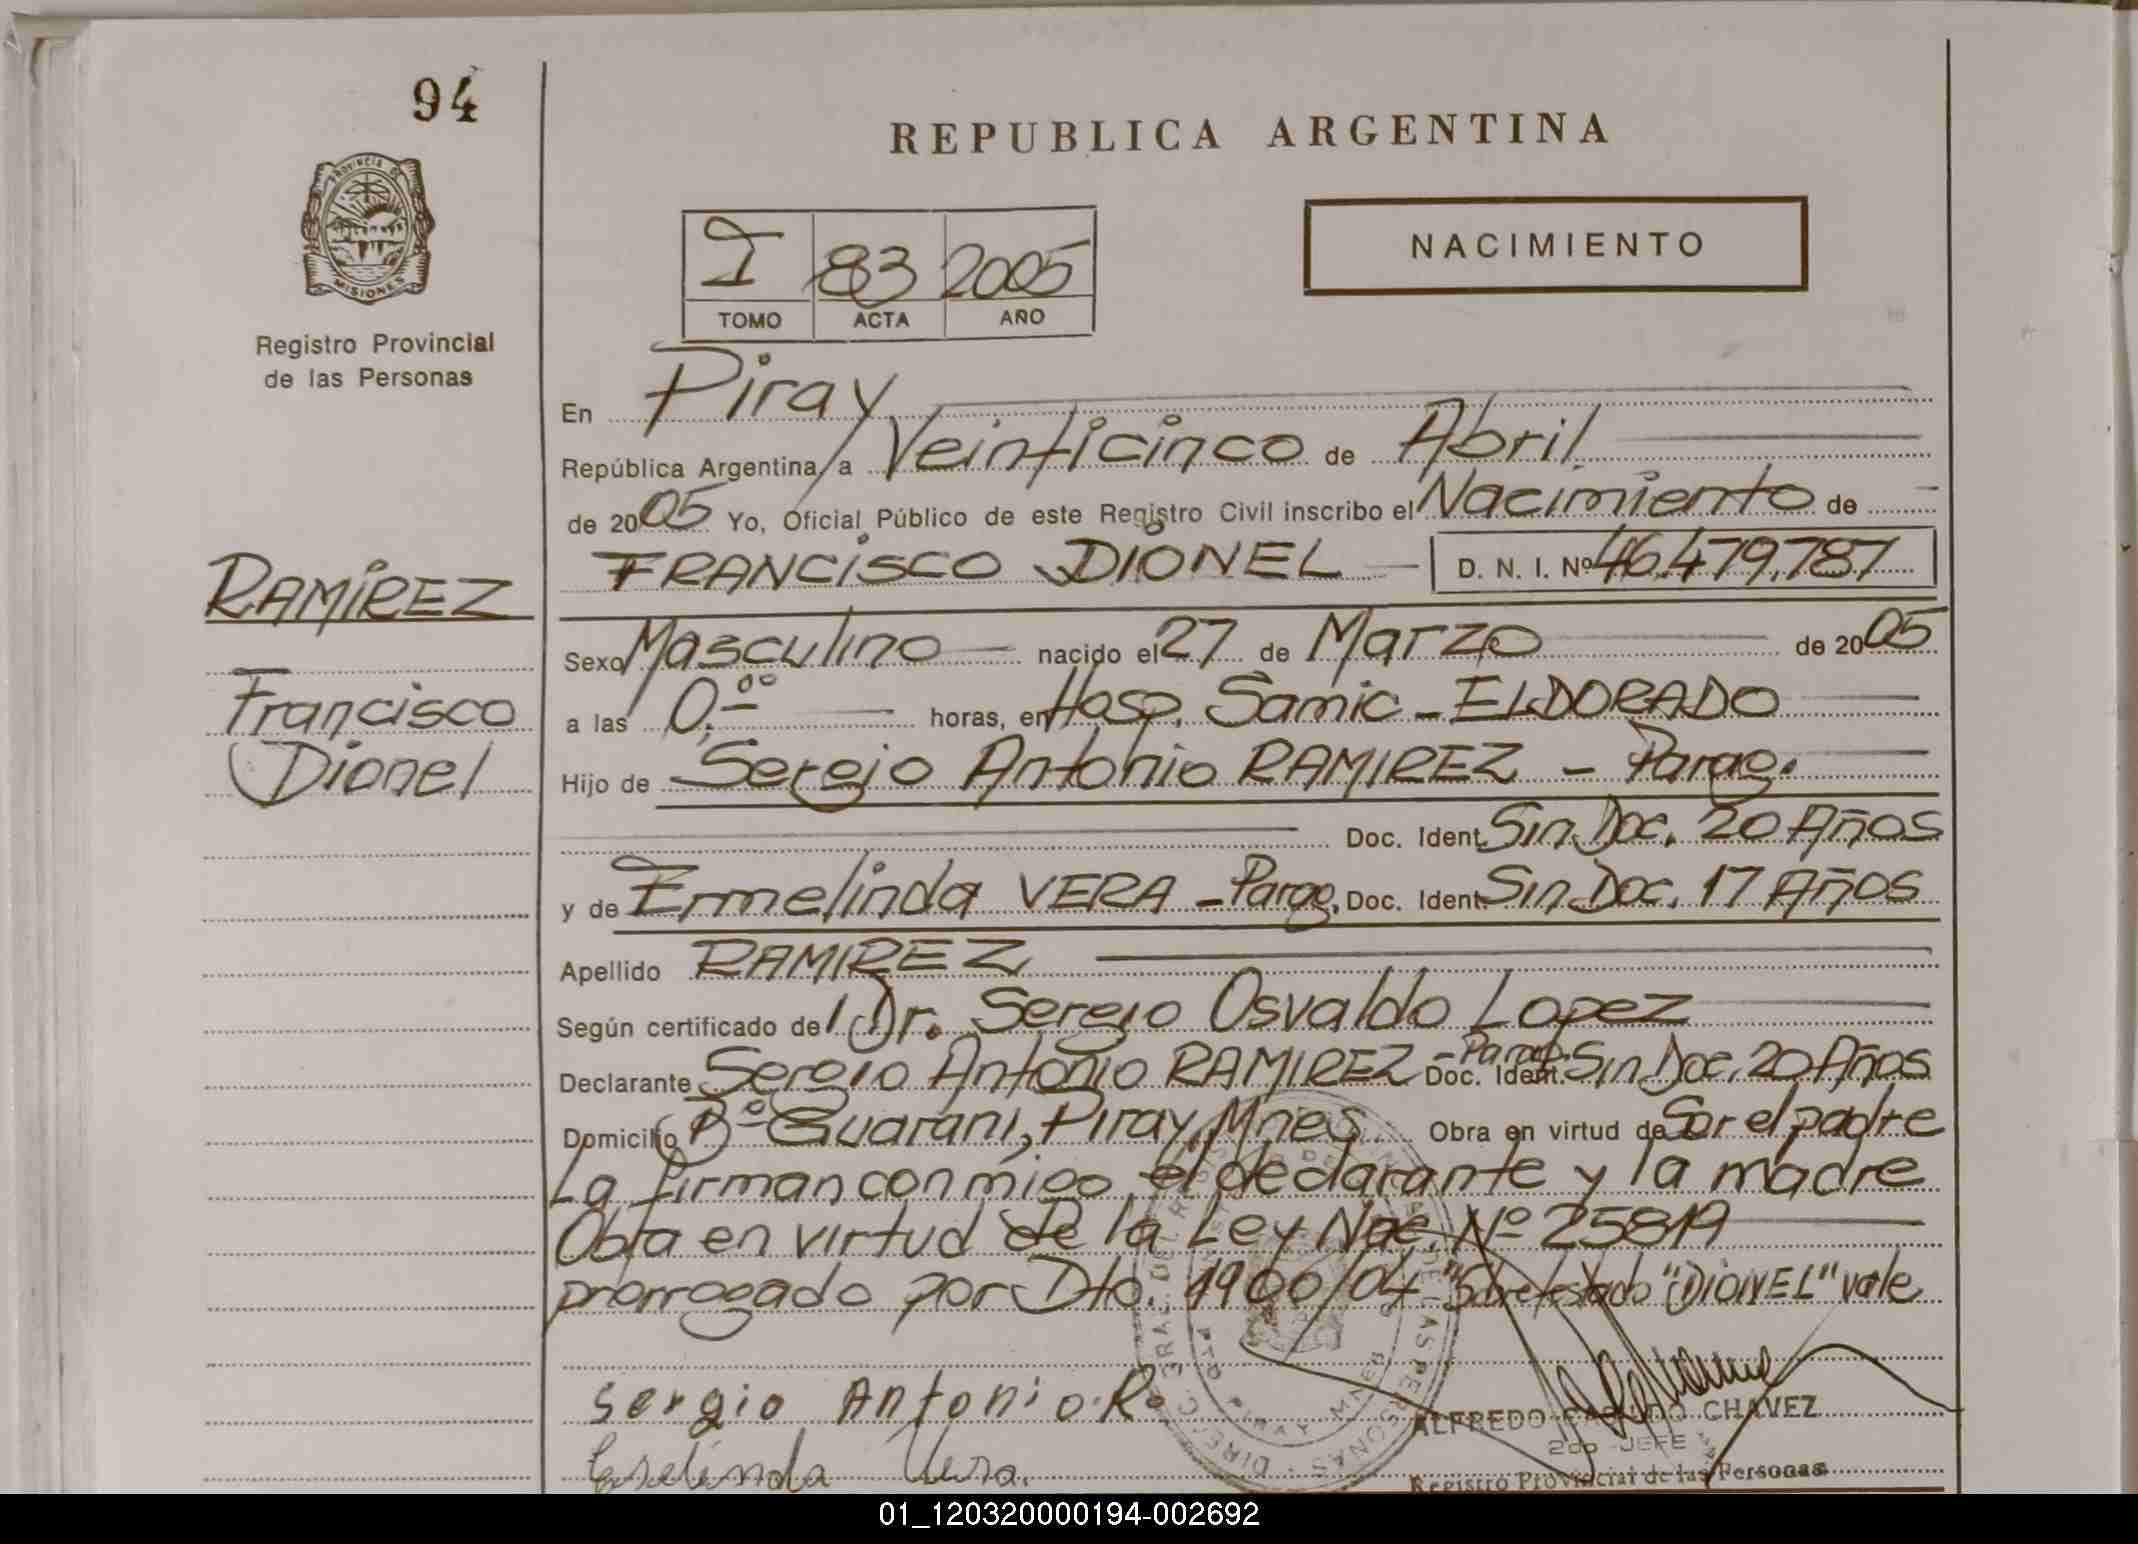 94
REPUBLICA ARGENTINA
PROVINCIA DE
MISIONES
Registro Provincial
de las Personas
I 83 2005
TOMO ACTA AÑO
NACIMIENTO
En Piray
República Argentina, a Veinticinco de Abril
de 2005 Yo, Oficial Público de este Registro Civil inscribo el Nacimiento de
RAMIREZ
Francisco
Dionel
FRANCISCO DIONEL D. N. I. Nº 46.479.787
Sexo Masculino nacido el 27 de Marzo de 2005
a las 0.00 horas, en Hosp. Samic - ELDORADO
Hijo de Sergio Antonio RAMIREZ - Parag.
Doc. Ident. Sin Doc. 20 Años
y de Ermelinda VERA - Parag. Doc. Ident. Sin Doc. 17 Años
Apellido RAMIREZ
Según certificado del Dr. Sergio Osvaldo Lopez
Declarante Sergio Antonio RAMIREZ - Parag. Doc. Ident. Sin Doc. 20 Años
Domicilio Bº Guarani, Piray, Mnes. Obra en virtud de Ser el padre
La firman conmigo el declarante y la madre
Obra en virtud de la Ley Nac. Nº 25819
prorrogado por Dto. 1900/04 "Sobretestado "DIONEL" vale
Sergio Antonio.R.
Vera.
ALFREDO CHAVEZ
2do JEFE
Registro Provincial de las Personas
01_120320000194-002692